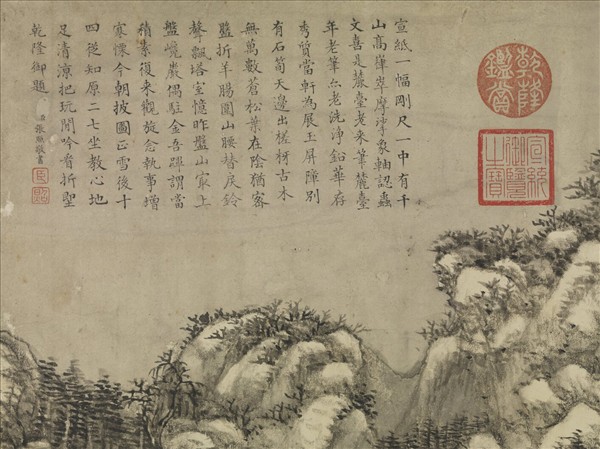 乾隆鑑賞
宣統御覽之寶
宣紙一幅剛尺一中有千
山高嵂崒摩挲象軸認蟲
文喜是麓臺老来筆麓臺
年老筆亦老洗淨鉛華存
秀質當軒為展玉屏障別
有石筍天邊出槎枒古木
無萬數蒼松葉在陰猶密
盤折羊腸圍山腰替戾鈴
聲飄塔室憶昨盤山㝡上
盤巉巖偶駐金吾蹕謂當
積素復来觀旋念執事增
寒慄今朝披圖正雪後十
四從知原二七坐教心地
足清涼把玩閒吟
乾隆御題
張照敬書
臣照